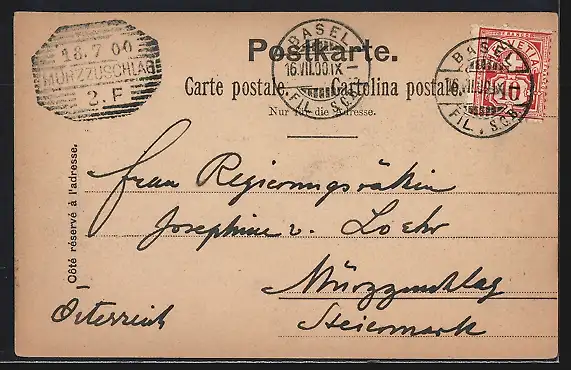 18.7 00
MÜRZZUSCHLAG
2. F
BASEL
16.VII.00.IX
FIL. S.C.B.
Postkarte.
BASEL
16.VII.00.IX
FIL. S.C.B.
HELVETIA
10
Carte postale. Cartolina postale.
Nur für die Adresse.
Côté réservé à l'adresse.
Frau Regierungsräthin
Josephine v. Loehr
Mürzzuschlag
Österreich
Steiermark